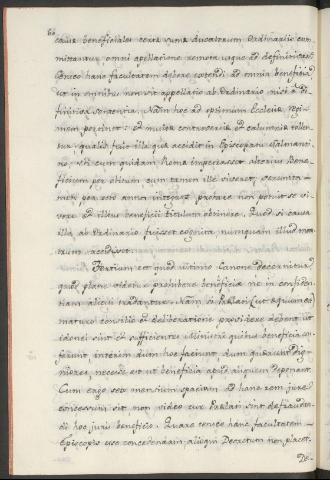 60
causæ beneficiales certa summa ducatorum Ordinariis com
mittantur omni apellatione remota usque ad definitivam
Censeo hanc facultatem debere extendi ad omnia beneficia
ut in omnibus non sit appellatio ab Ordinario nisi a di
finitiva sententia. Nam hoc ad optimum Ecclesiæ regi
men pertinet: et multæ controversiæ et calumniæ tollen
tur, qualis fuit illa quæ accidit in Episcopatu Salmanti
no, ubi cum quidam Romæ impetrasset alterius Bene
ficium per obitum cum tamen ille viveret,
per sex annos integros probare non potuit se vi
vere et illius beneficii titulum obtinere. Quod si causa
illa ab Ordinario fuisset cognita numquam illud mon
strum accidisset.
Tertium est quod ultimo Canone decernitur
quod plane videtur prohibere beneficia ne in confiden
tiam alicui tradantur. Nam si Prælati, ut æquum est
maturo consilio et deliberatione providere debent ut
idonei sint et sufficientes Ministri quibus beneficia con
ferunt, interim dum hoc faciunt, dum quærunt dig
niores, necesse est ut beneficia apud aliquem deponant.
Cum ergo sex mensium spatium ad hanc rem jure
concessum sit non video cur Prælati sint defraudan
di hoc juris beneficio. Quare censeo hanc facultatem
Episcopis esse concedendam, aliqui Decretum non placet.
De-